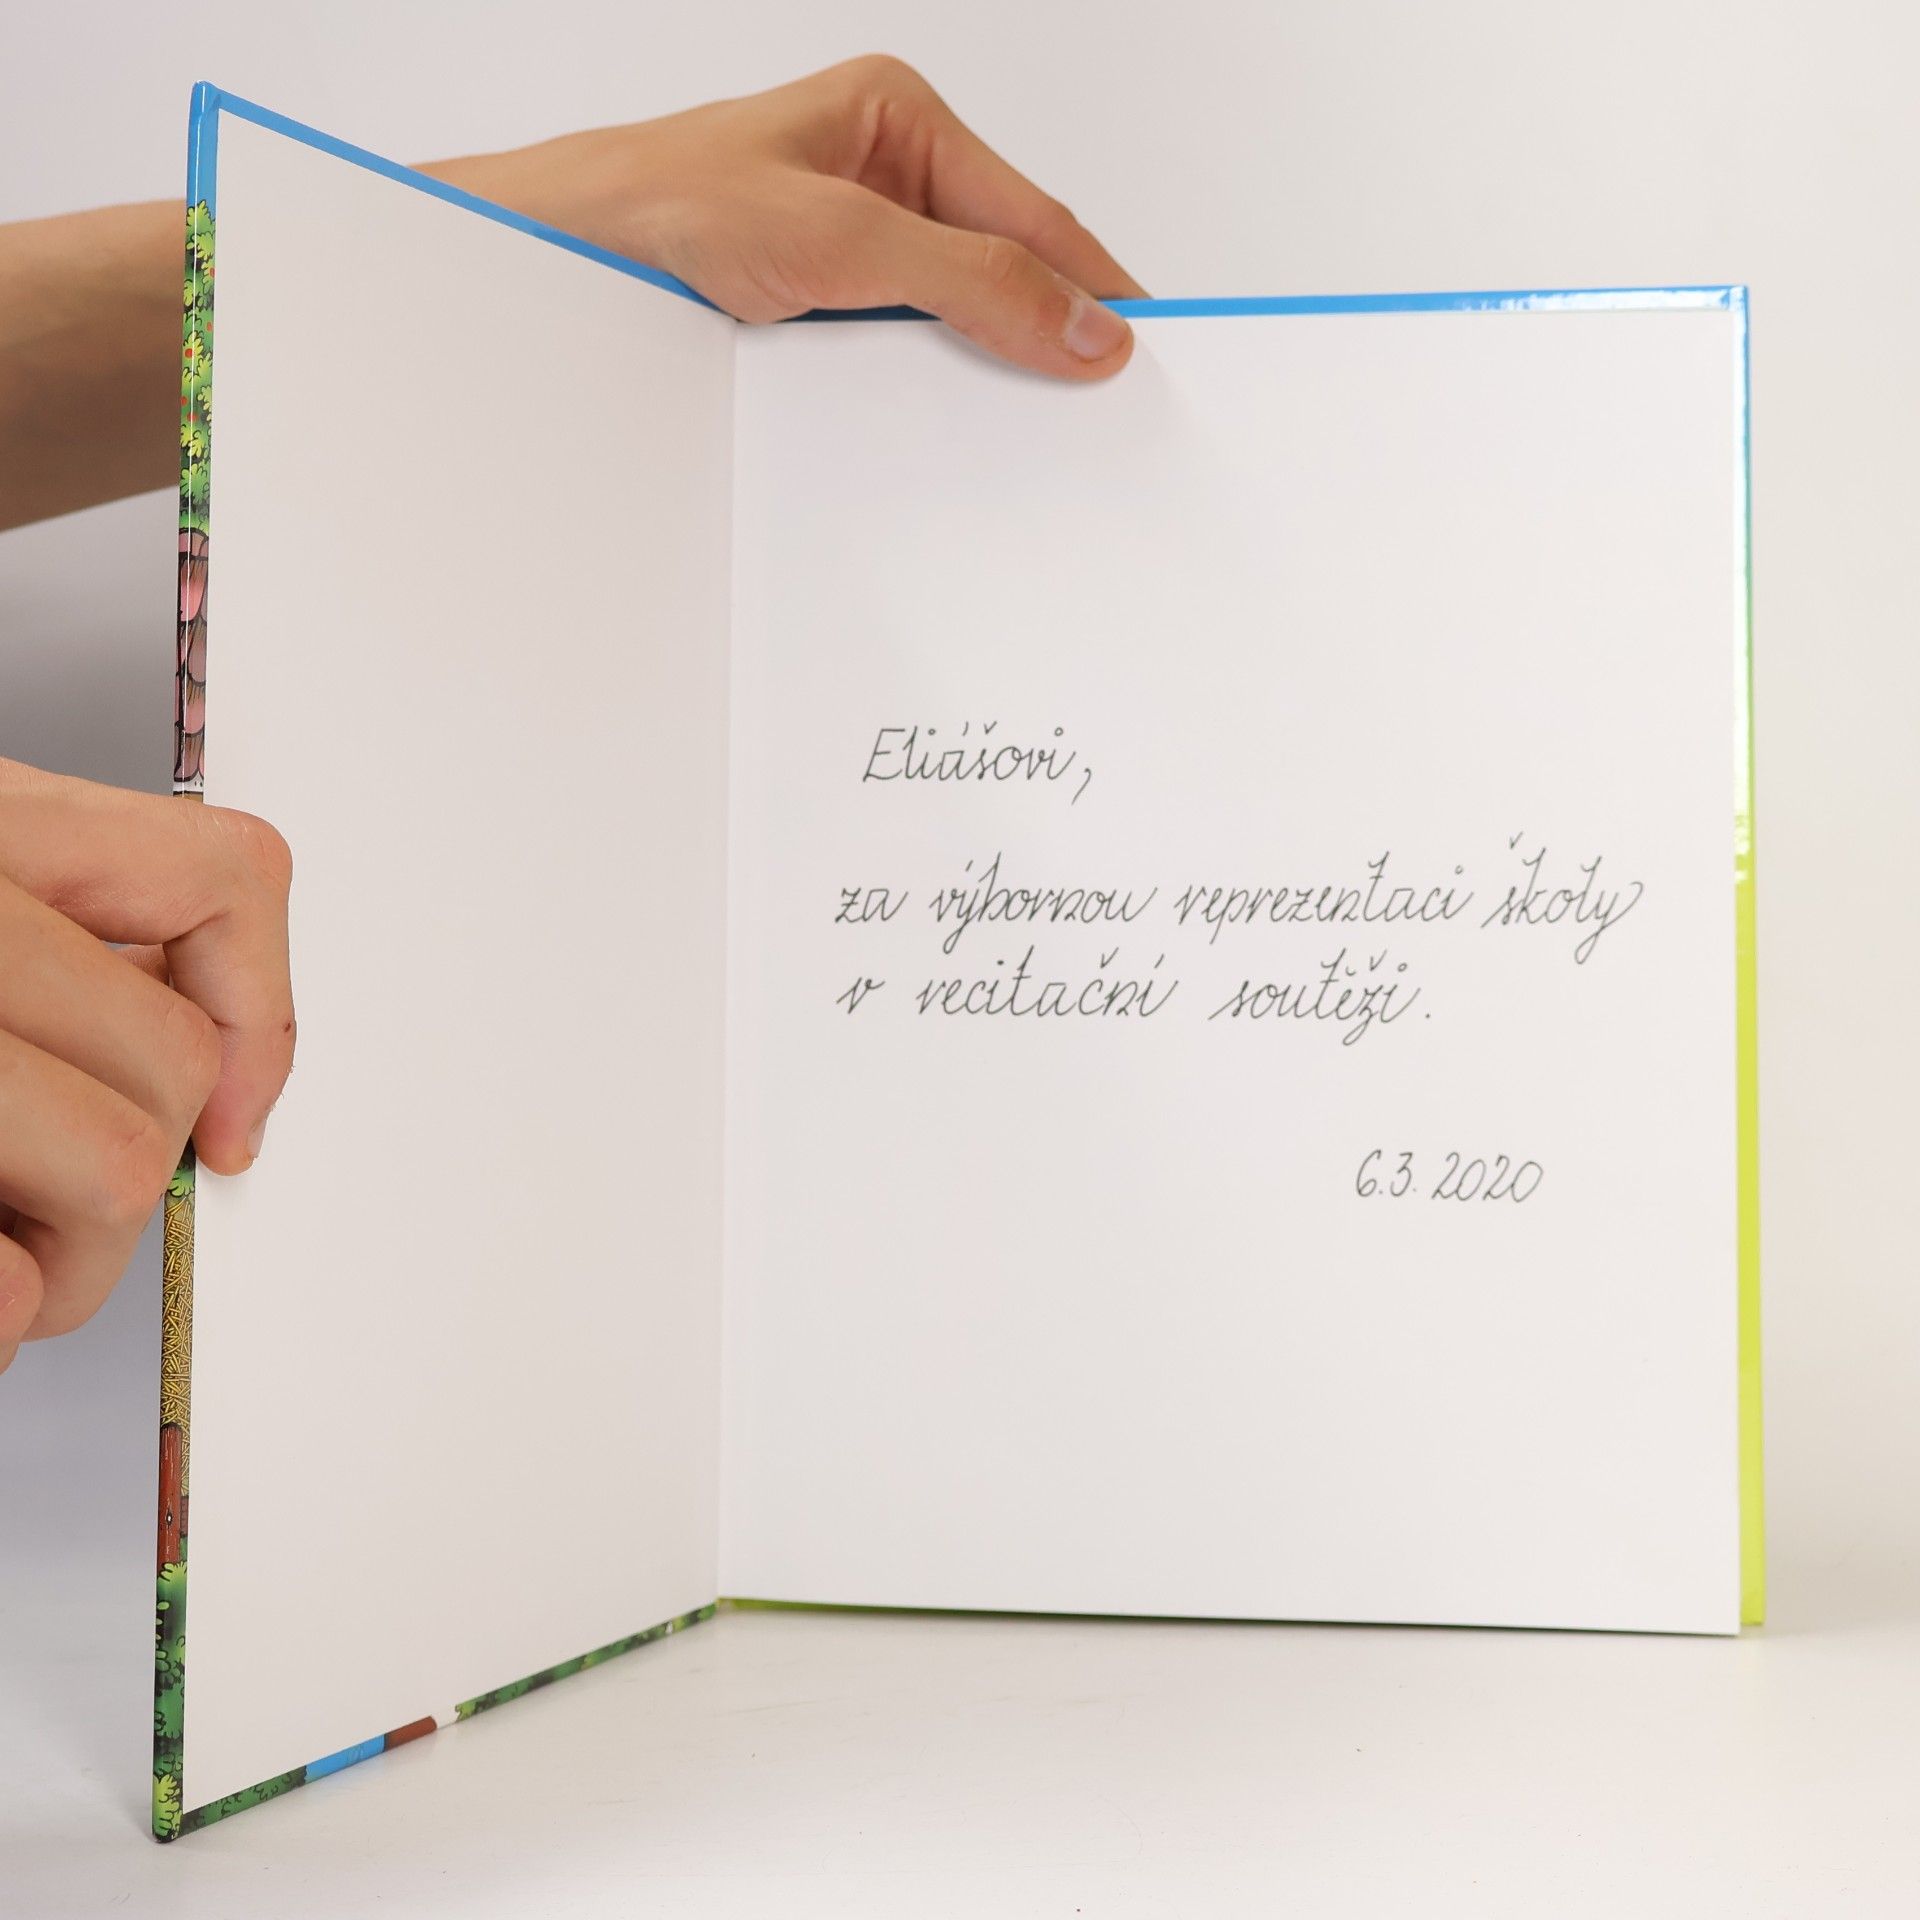 Eliášovi,
za výbornou reprezentaci školy
v recitační soutěži.
6.3. 2020